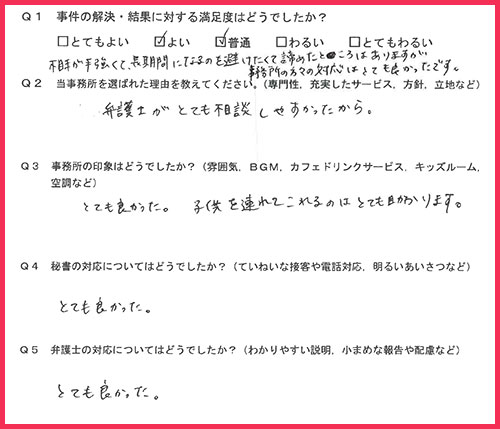 Q1 事件の解決・結果に対する満足度はどうでしたか?
□とてもよい ☑よい ☑普通 □わるい □とてもわるい
相手が手強くて、長期間になるのを避けたくて諦めたところはありますが、
事務所の方々の対応はとても良かったです。
Q2 当事務所を選ばれた理由を教えてください。(専門性, 充実したサービス, 方針, 立地など)
弁護士がとても相談しやすかったから。
Q3 事務所の印象はどうでしたか?(雰囲気, BGM, カフェドリンクサービス, キッズルーム,
空調など)
とても良かった。 子供を連れてこれるのはとても助かります。
Q4 秘書の対応についてはどうでしたか?(ていねいな接客や電話対応, 明るいあいさつなど)
とても良かった。
Q5 弁護士の対応についてはどうでしたか?(わかりやすい説明, 小まめな報告や配慮など)
とても良かった。